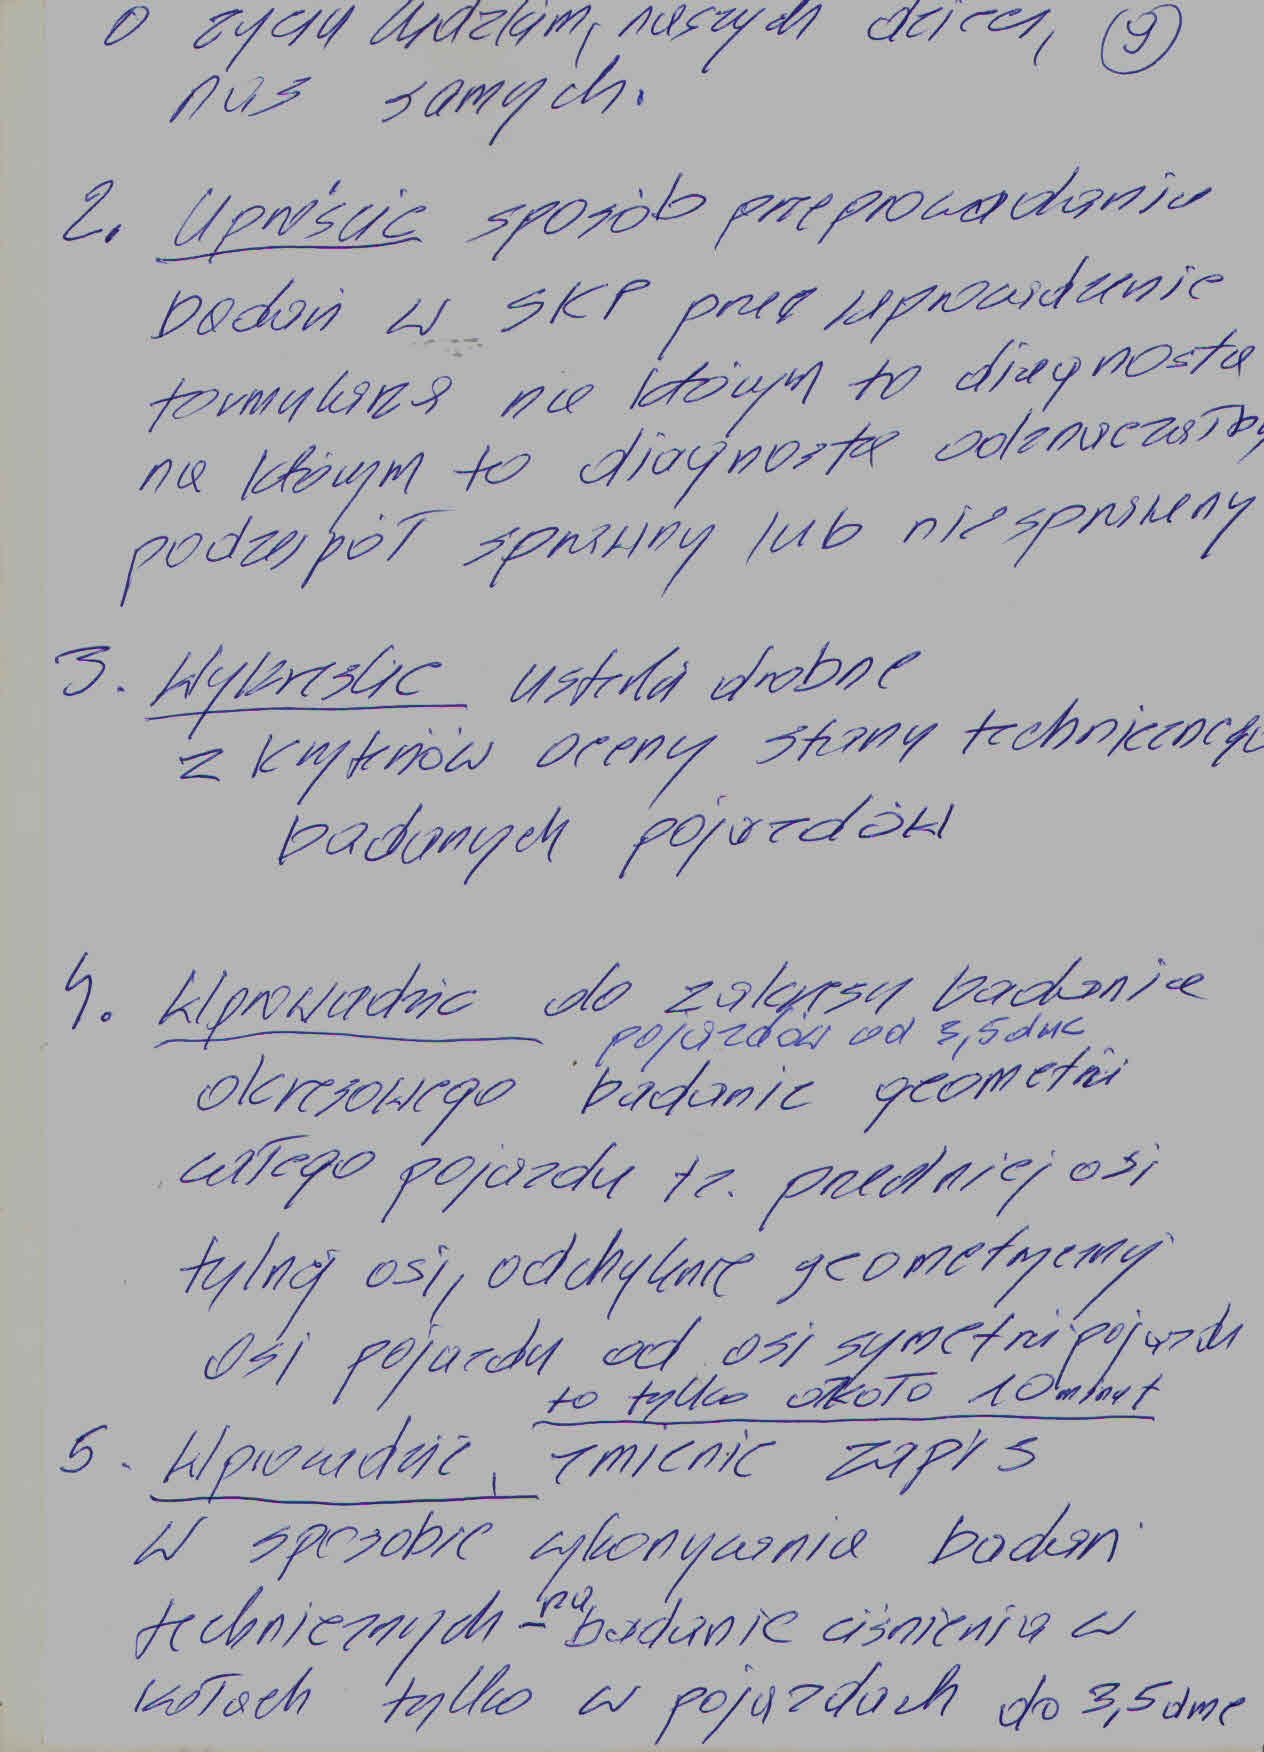 o życiu ludzkim, naszych dzieci, (9)
nas samych.
2. Uprościć sposób przeprowadzania
badań w SKP przez wprowadzenie
formularza na którym to diagnosta
na którym to diagnosta odznaczałby
podzespół sprawny lub niesprawny
3. Wykreślić usterki drobne
z kryteriów oceny stanu technicznego
badanych pojazdów
4. Wprowadzić do zakresu badania
pojazdów od 3,5 dmc
okresowego badanie geometrii
całego pojazdu tz. przedniej osi
tylnej osi, odchylenie geometrycznej
osi pojazdu od osi symetrii pojazdu
to tylko około 10 minut
5. Wprowadzić, zmienić zapis
w sposobie wykonywania badań
technicznych - na badanie ciśnienia w
kołach tylko w pojazdach do 3,5 dmc